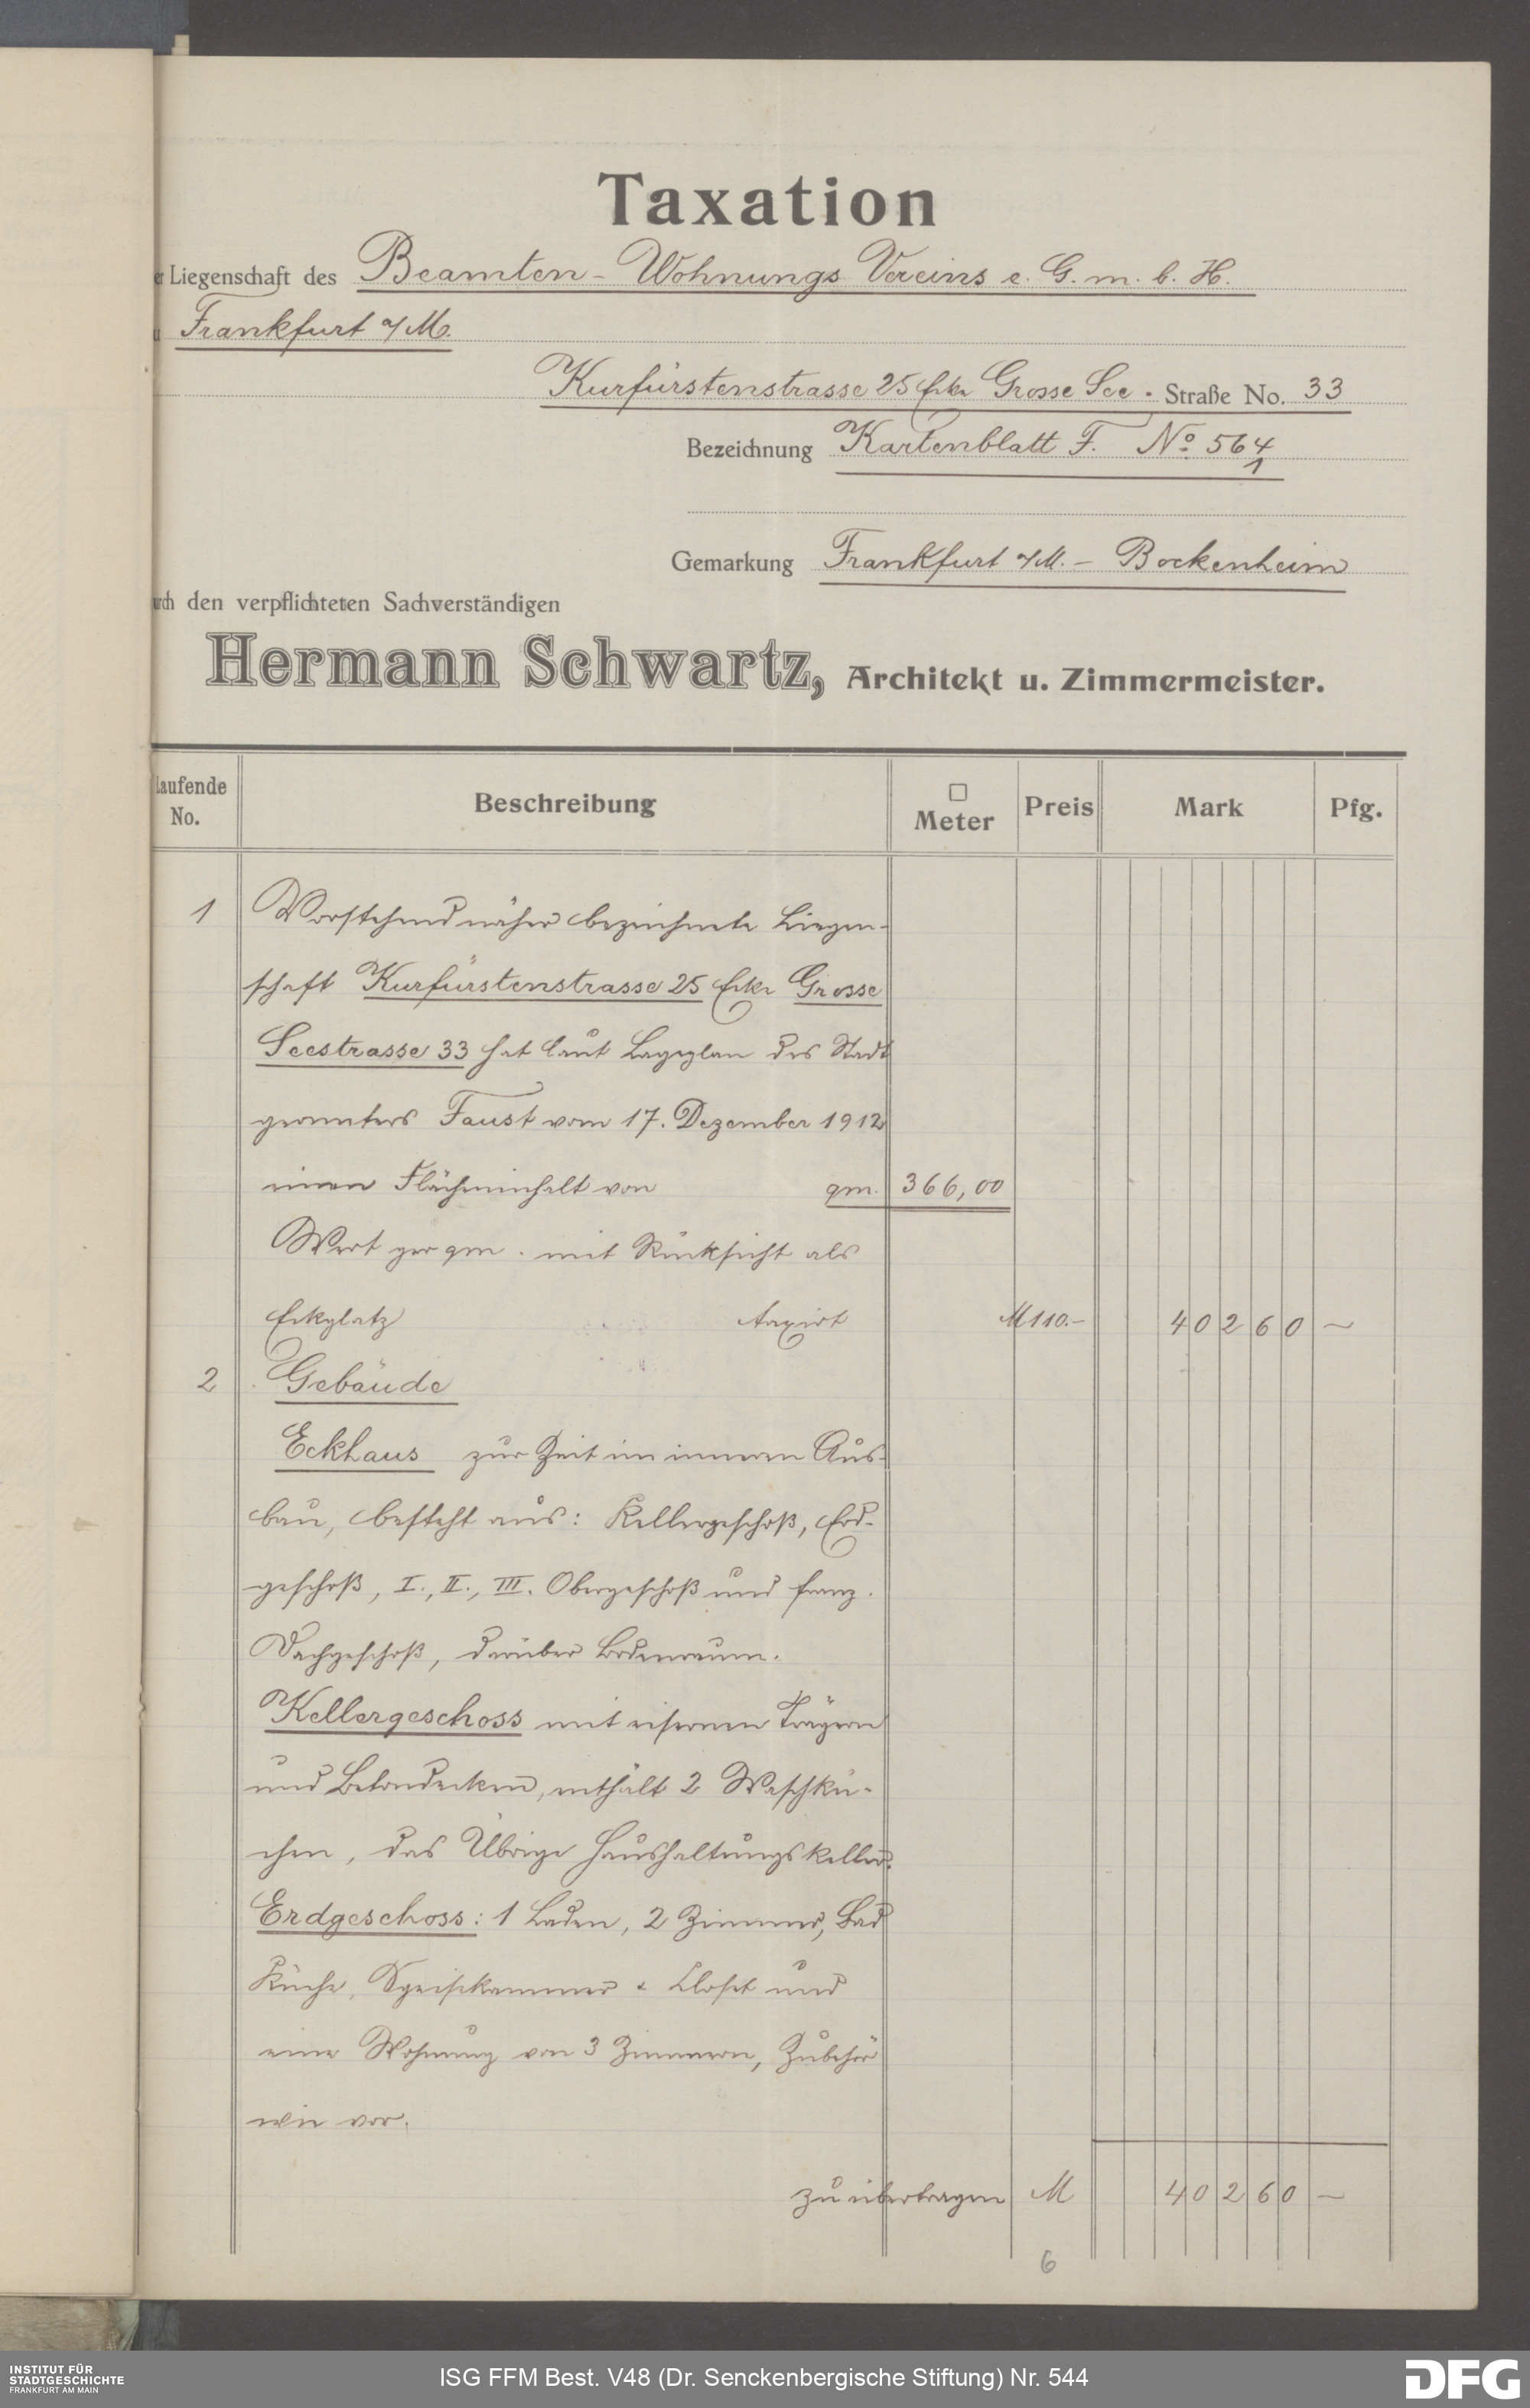 Taxation
er Liegenschaft des Beamten-Wohnungs Vereins e. G. m. b. H.
u Frankfurt a/M.
Kurfürstenstrasse 25 Ecke Grosse See - Straße No. 33
Bezeichnung Kartenblatt F. No 564
1
Gemarkung Frankfurt a/M. - Bockenheim
urch den verpflichteten Sachverständigen
Hermann Schwartz, Architekt u. Zimmermeister.
Laufende No. Beschreibung □ Meter Preis Mark Pfg.
1 Vorstehend näher bezeichnete Liegen-
schaft Kurfürstenstrasse 25 Ecke Grosse
Seestrasse 33 hat laut Lageplan des Stadt
geometers Faust vom 17. Dezember 1912
einen Flächeninhalt von qm. 366,00
Wert per qm. mit Rücksicht als
Eckplatz taxirt M 110.- 40260 –
2 Gebäude
Eckhaus zur Zeit im inneren Aus-
bau, besteht aus: Kellergeschoß, Erd-
geschoß, I., II., III. Obergeschoß und franz.
Dachgeschoß, darüber Bodenraum.
Kellergeschoss mit eisernen Trägern
und Betondecken, enthält 2 Waschkü-
chen, das Übrige Haushaltungskeller.
Erdgeschoss: 1 Laden, 2 Zimmer, Bad
Küche, Speisekammer & Closet und
eine Wohnung von 3 Zimmern, Zubehör
wie vor.
zu übertragen M 40260 –
6
INSTITUT FÜR
STADTGESCHICHTE
FRANKFURT AM MAIN
ISG FFM Best. V48 (Dr. Senckenbergische Stiftung) Nr. 544
DFG